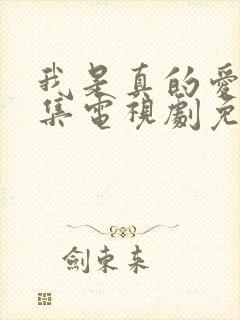 我是真的愛
集電視劇免
劍東來